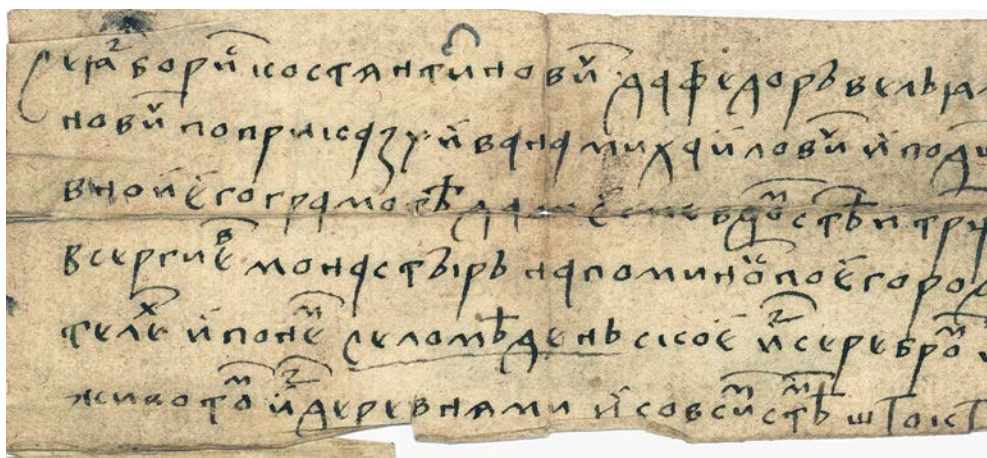 Се ꙗз борис костянтинович да федоръ вельꙗ
нович по приказу ивана михаилович и по д
внои его грамотѣ дали есме в дом стѣи тру
в сергиев монастырь на помино по его род
телех и по нем село мѣденьское и с серебром
животом и з деревнями и со всем с тѣм што к